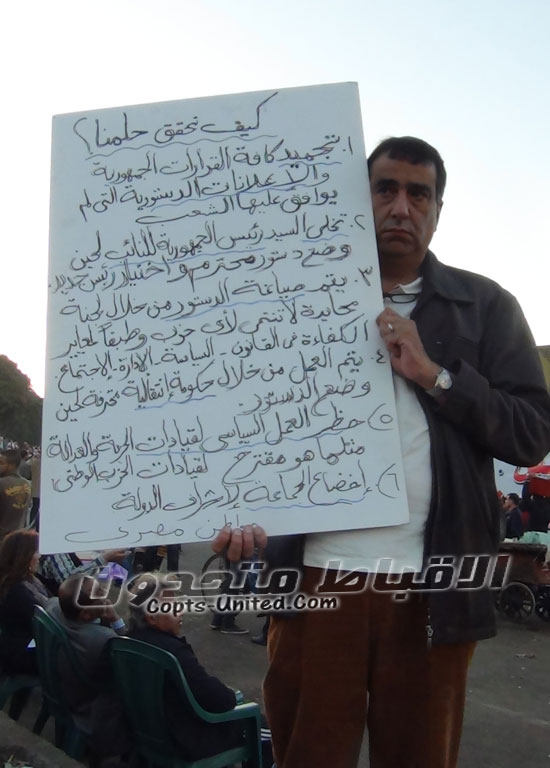 كيف نحقق حلمنا؟
١. تجميد كافة القرارات الجمهورية
والإعلانات الدستورية التى لم
يوافق عليها الشعب
٢. تخلى السيد رئيس الجمهورية للنائب لحين
وضع دستور محترم واختيار رئيس جديد.
٣. يتم صياغة الدستور من خلال لجنة
محايدة لا تنتمى لأى حزب وطبقاً لمعايير
الكفاءة فى القانون - السياسة - الإدارة - الاجتماع
٤. يتم العمل من خلال حكومة إنتقالية محترفة لحين
وضع الدستور.
٥) حظر العمل السياسى لقيادات الحرية والعدالة
مثلما هو مقترح لقيادات الحزب الوطنى
٦) إخضاع الجماعة لإشراف الدولة
مواطن مصرى
الاقباط متحدون
Copts-United.Com